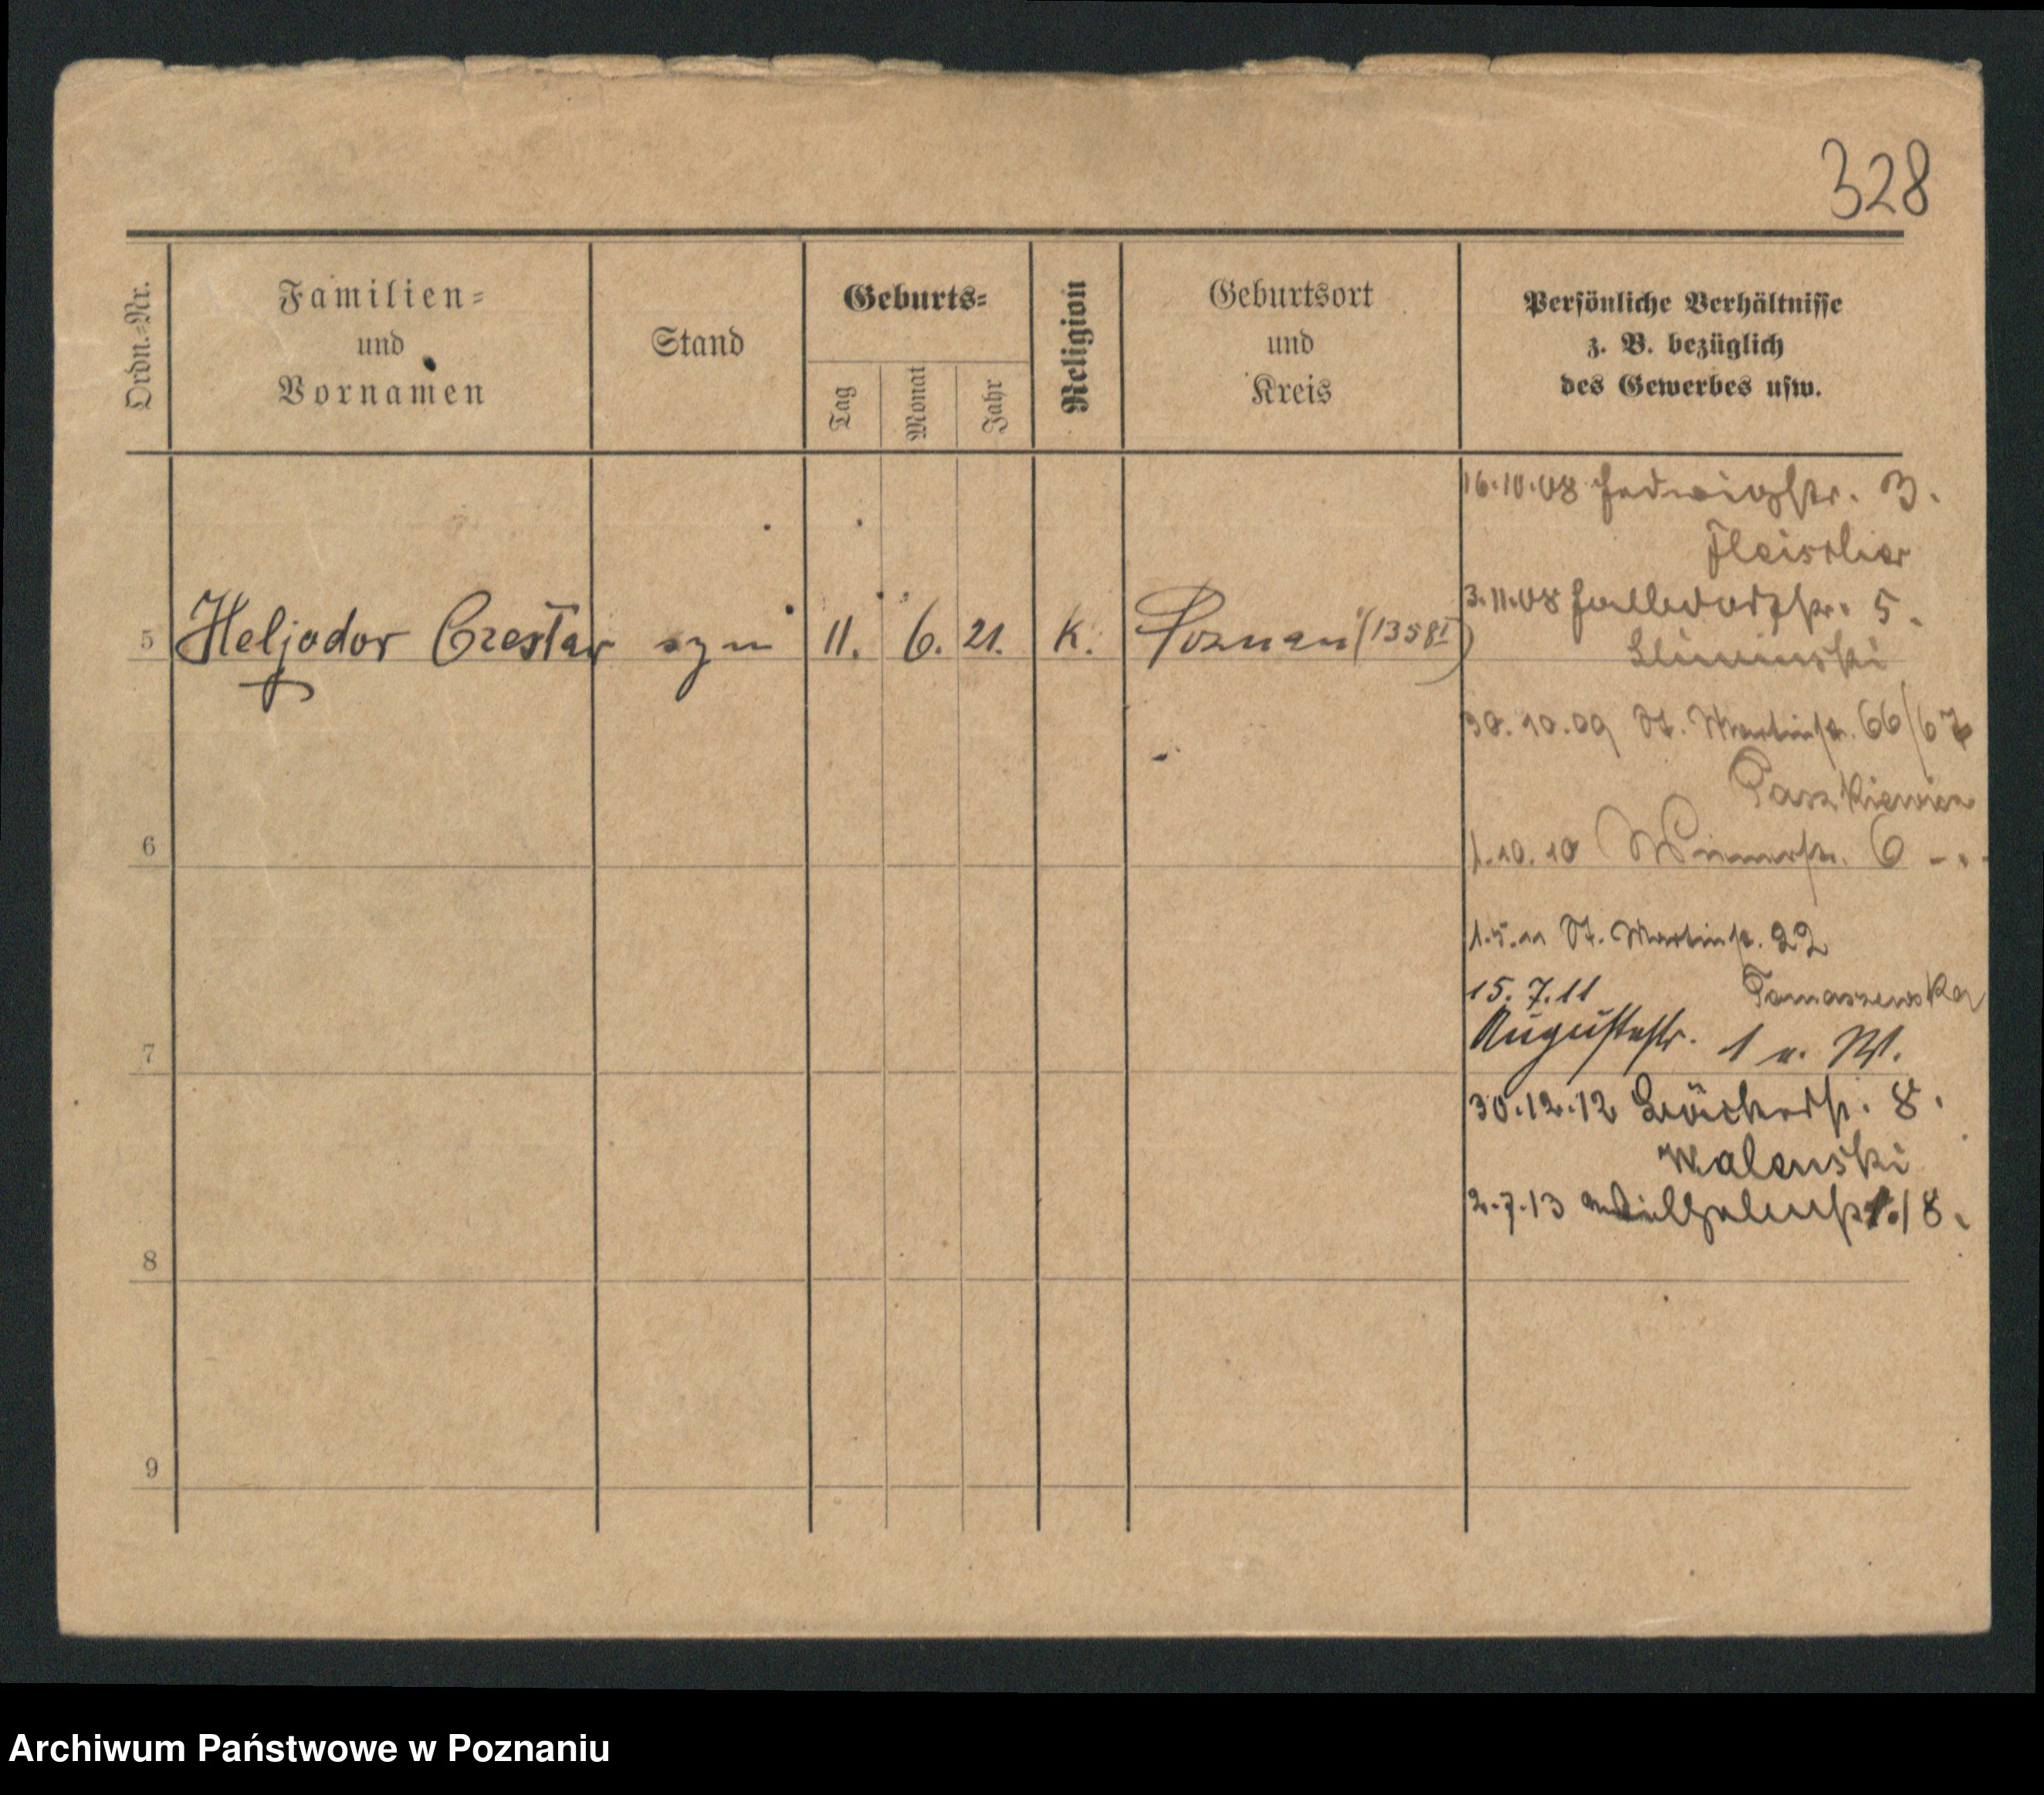 328
Ordn.-Nr.
Familien-
und
Vornamen
Stand
Geburts-
Tag
Monat
Jahr
Religion
Geburtsort
und
Kreis
Persönliche Verhältnisse
z. B. bezüglich
des Gewerbes usw.
16.10.08 Hedwigstr. 3.
3.11.08 5.
5 Heljodor Czesław syn 11. 6. 21. K. Poznań (1358I)
30.10.09 St. Martinstr. 66/67
Paszkiewicz
6
1.10.10 6 - " -
1.5.11 St. Martinstr. 22
15.7.11 Tomaszewska
Augustastr. 1 u. W.
7
30.12.12 8.
Walenski
2.7.13 Wilhelmstr. 18.
8
9
Archiwum Państwowe w Poznaniu